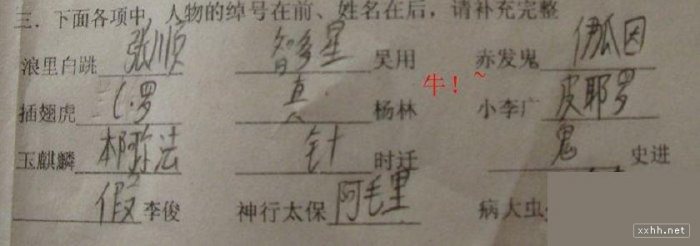 三.下面各项中,人物的绰号在前、姓名在后,请补充完整
浪里白跳张顺 智多星吴用 赤发鬼伊瓜因
牛!~
插翅虎C.罗 真杨林 小李广皮耶罗
玉麒麟本阿弥法 针时迁 鬼史进
假李俊 神行太保阿毛里 病大虫
xxhh.net